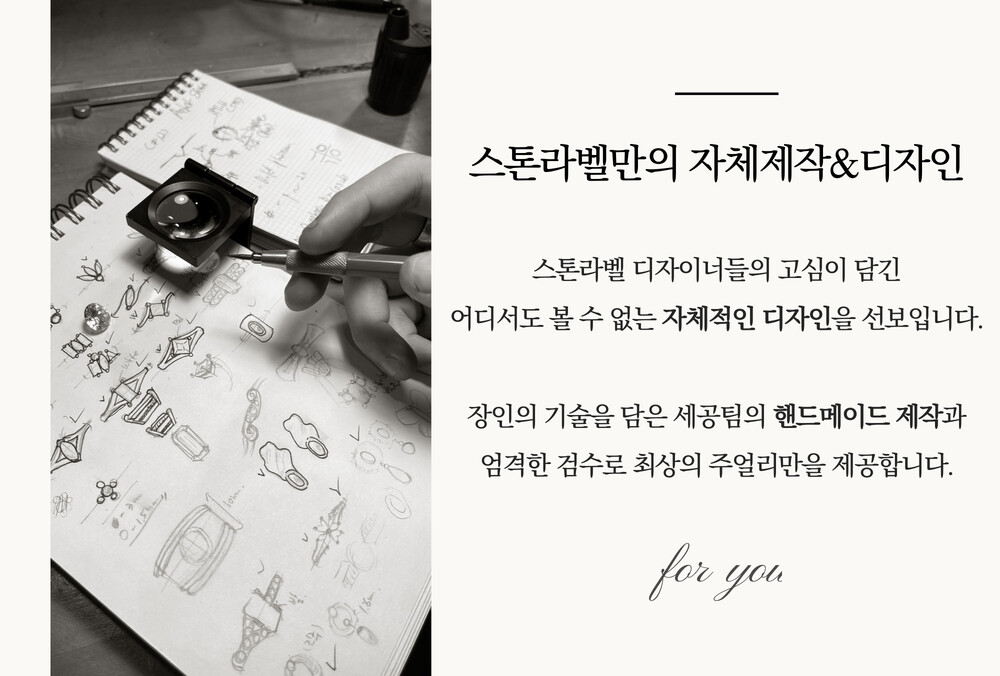 스톤라벨만의 자체제작&디자인
스톤라벨 디자이너들의 고심이 담긴
어디서도 볼 수 없는 자체적인 디자인을 선보입니다.
장인의 기술을 담은 세공팀의 핸드메이드 제작과
엄격한 검수로 최상의 주얼리만을 제공합니다.
for you